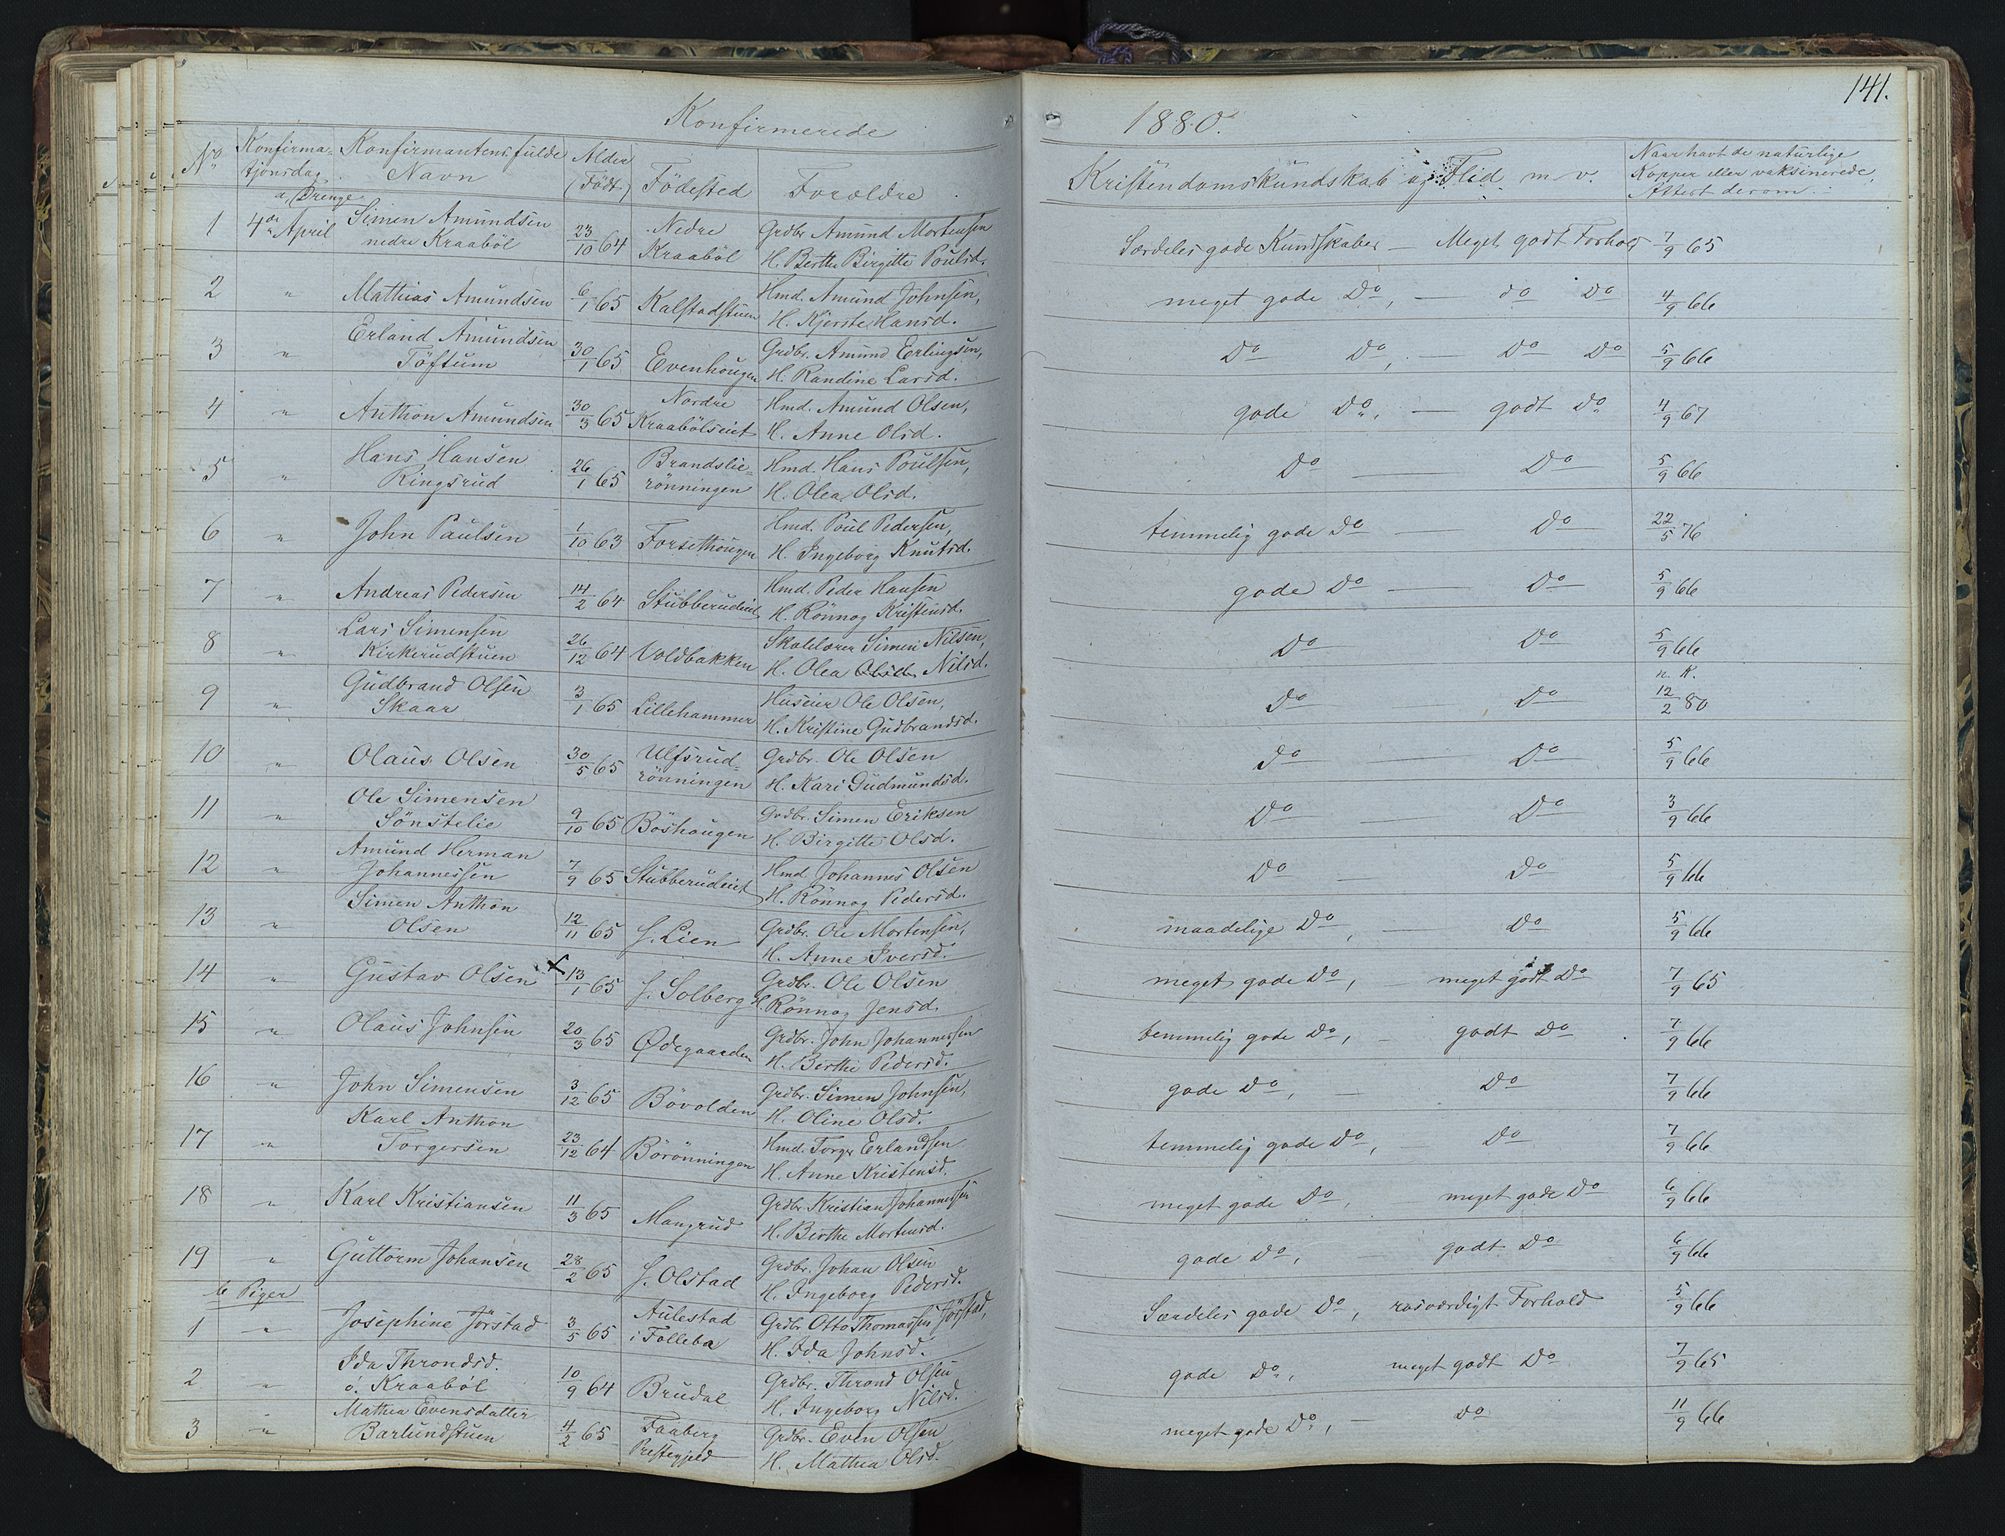 Konfirmerede
1880.
141.
No Konfirma- Konfirmantens fulde Alder
tjonsdag Navn (Født) Fødested Forældre
Kristendomskundskab og Flid m v.
Naar havt de naturlige
Kopper eller vaksinerede,
Attest derom.
a, Drenge
1 4de April Simen Amundsen 23/10 64 Nedre Grdbr. Amund Mortensen
nedre Kraaböl Kraaböl H. Berthe Birgitte Poulsd.
Særdeles gode Kundskaber — Meget godt Forhold 7/9 65
2 " Mathias Amundsen 6/1 65 Kalstadstuen Hmd. Amund Johnsen,
H. Kjersti Hansd.
meget gode Do, — do Do 4/9 66
3 " Erland Amundsen 30/1 65 Evenhougen Grdbr. Amund Erlingsen,
Töftum H. Randine Larsd.
Do Do, — Do Do 5/9 66
4 " Anthon Amundsen 30/3 65 Nordre Hmd. Amund Olsen,
Kraabölseiet H. Anne Olsd.
gode Do, — godt Do 4/9 67
5 " Hans Hansen 26/1 65 Brandslie- Hmd. Hans Poulsen,
Ringsrud rönningen H. Olea Olsd.
Do — Do 5/9 66
6 " John Paulsen 1/10 63 Forsethougen Hmd. Poul Pedersen,
H. Ingeborg Knutsd.
temmelig gode Do — Do 22/5 76
7 " Andreas Pedersen 14/2 64 Stubberudeiet Hmd. Peder Hansen
H. Rönnog Kristensd.
gode Do — Do 5/9 66
8 " Lars Simensen 26/12 64 Voldbakken Skolelærer Simen Nilsen,
Kirkerudstuen H. Olea Olsd. Nilsd.
Do Do 5/9 66
n. K.
9 " Gudbrand Olsen 3/1 65 Lillehammer Huseier Ole Olsen,
Skaar H. Kristine Gudbrandsd.
Do — Do 12/2 80
10 " Olaus Olsen 30/5 65 Ulfsrud- Grdbr. Ole Olsen
rönningen H. Kari Gudmundsd.
Do — Do 5/9 66
11 " Ole Simensen 9/10 65 Böshougen Grdbr. Simen Eriksen
Sönstelie H. Birgitte Olsd.
Do — Do 3/9 66
12 " Amund Herman 7/9 65 Stubberudeiet Hmd. Johannes Olsen
Johannessen H. Rönnog Pedersd.
Do — Do 5/9 66
13 " Simen Anthon 12/11 65 S. Lien Grdbr. Ole Mortensen,
Olsen H. Anne Iversd.
maadelige Do, — Do 5/9 66
14 " Gustav Olsen 13/1 65 S. Solberg Grdbr. Ole Olsen
H. Rönnog Jensd.
meget gode Do, — meget godt Do 7/9 65
15 " Olaus Johnsen 20/3 65 Ødegaarden Grdbr. John Johannessen
H. Berthe Pedersd.
temmelig gode Do, — godt Do 7/9 66
16 " John Simensen 3/12 65 Bövolden Grdbr. Simen Johnsen,
H. Oline Olsd.
gode Do, — Do 7/9 66
17 " Karl Anthon 23/12 64 Börönningen Hmd. Torger Erlandsen
Torgersen H. Anne Kristensd.
temmelig gode Do, — Do 7/9 66
18 " Karl Kristiansen 11/3 65 Mangrud Grdbr. Kristian Johannessen
H. Birthe Mortensd.
meget gode Do, meget gode Do 6/9 66
19 " Guttorm Johansen 28/2 65 S. Olstad Grdbr. Johan Olsen
H. Ingeborg Pedersd.
gode Do, — godt Do 6/9 66
b Piger
1 " Josephine Jörstad 3/5 65 Aulestad Grdbr Otto Thomassen Jörstad,
i Follebu H. Ida Johnsd.
Særdeles gode Do, rosværdigt Forhold 5/9 66
2 " Ida Throndsd. 10/9 64 Brudal Grdbr. Thrond Olsen
ö. Kraaböl H. Ingeborg Nilsd.
gode Do, meget godt Do 7/9 65
3 " Mathea Evensdatter 4/2 65 Faaberg Grdbr. Even Olsen
Barlundstuen Prestegjeld H. Mathea Olsd.
meget gode Do, — Do 11/9 66